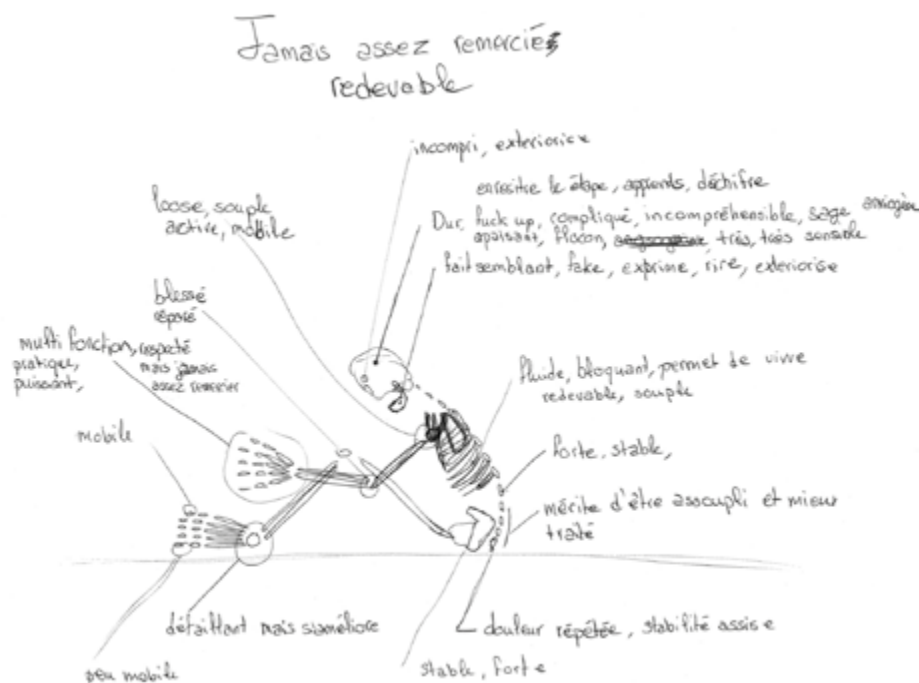 Jamais assez remerciés
redevable
incompri, exteriorise
enresitre le étape, apprends, déchifre
Dur, fuck up, compliqué, incompréhensible, sage
apaisant, flocon, très, très sensible
fait semblant, fake, exprime, rire, exteriorise
loose, souple
active, mobile
blessé
réparé
multi fonction, respecté
pratique, mais jamais
puissant, assez remercier
mobile
fluide, bloquant, permet de vivre
redevable, souple
forte, stable,
mérite d'être assoupli et mieux
traité
défaillant mais s'améliore
douleur répétée, stabilité assise
peu mobile
stable, forte